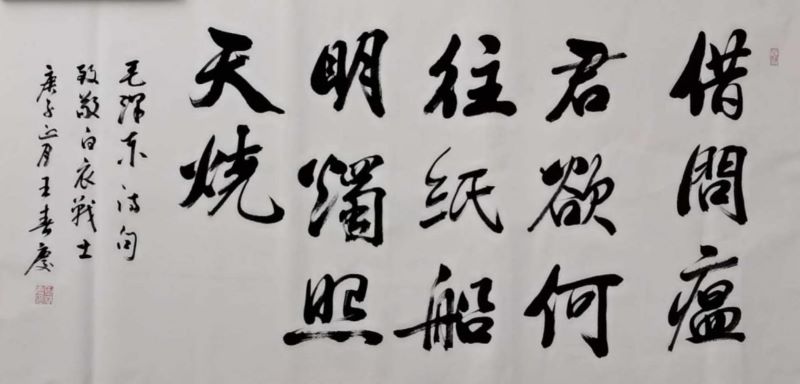 借問瘟
君欲何
往紙船
明燭照
天燒
毛澤东诗句
致敬白衣戰士
庚子正月王春慶